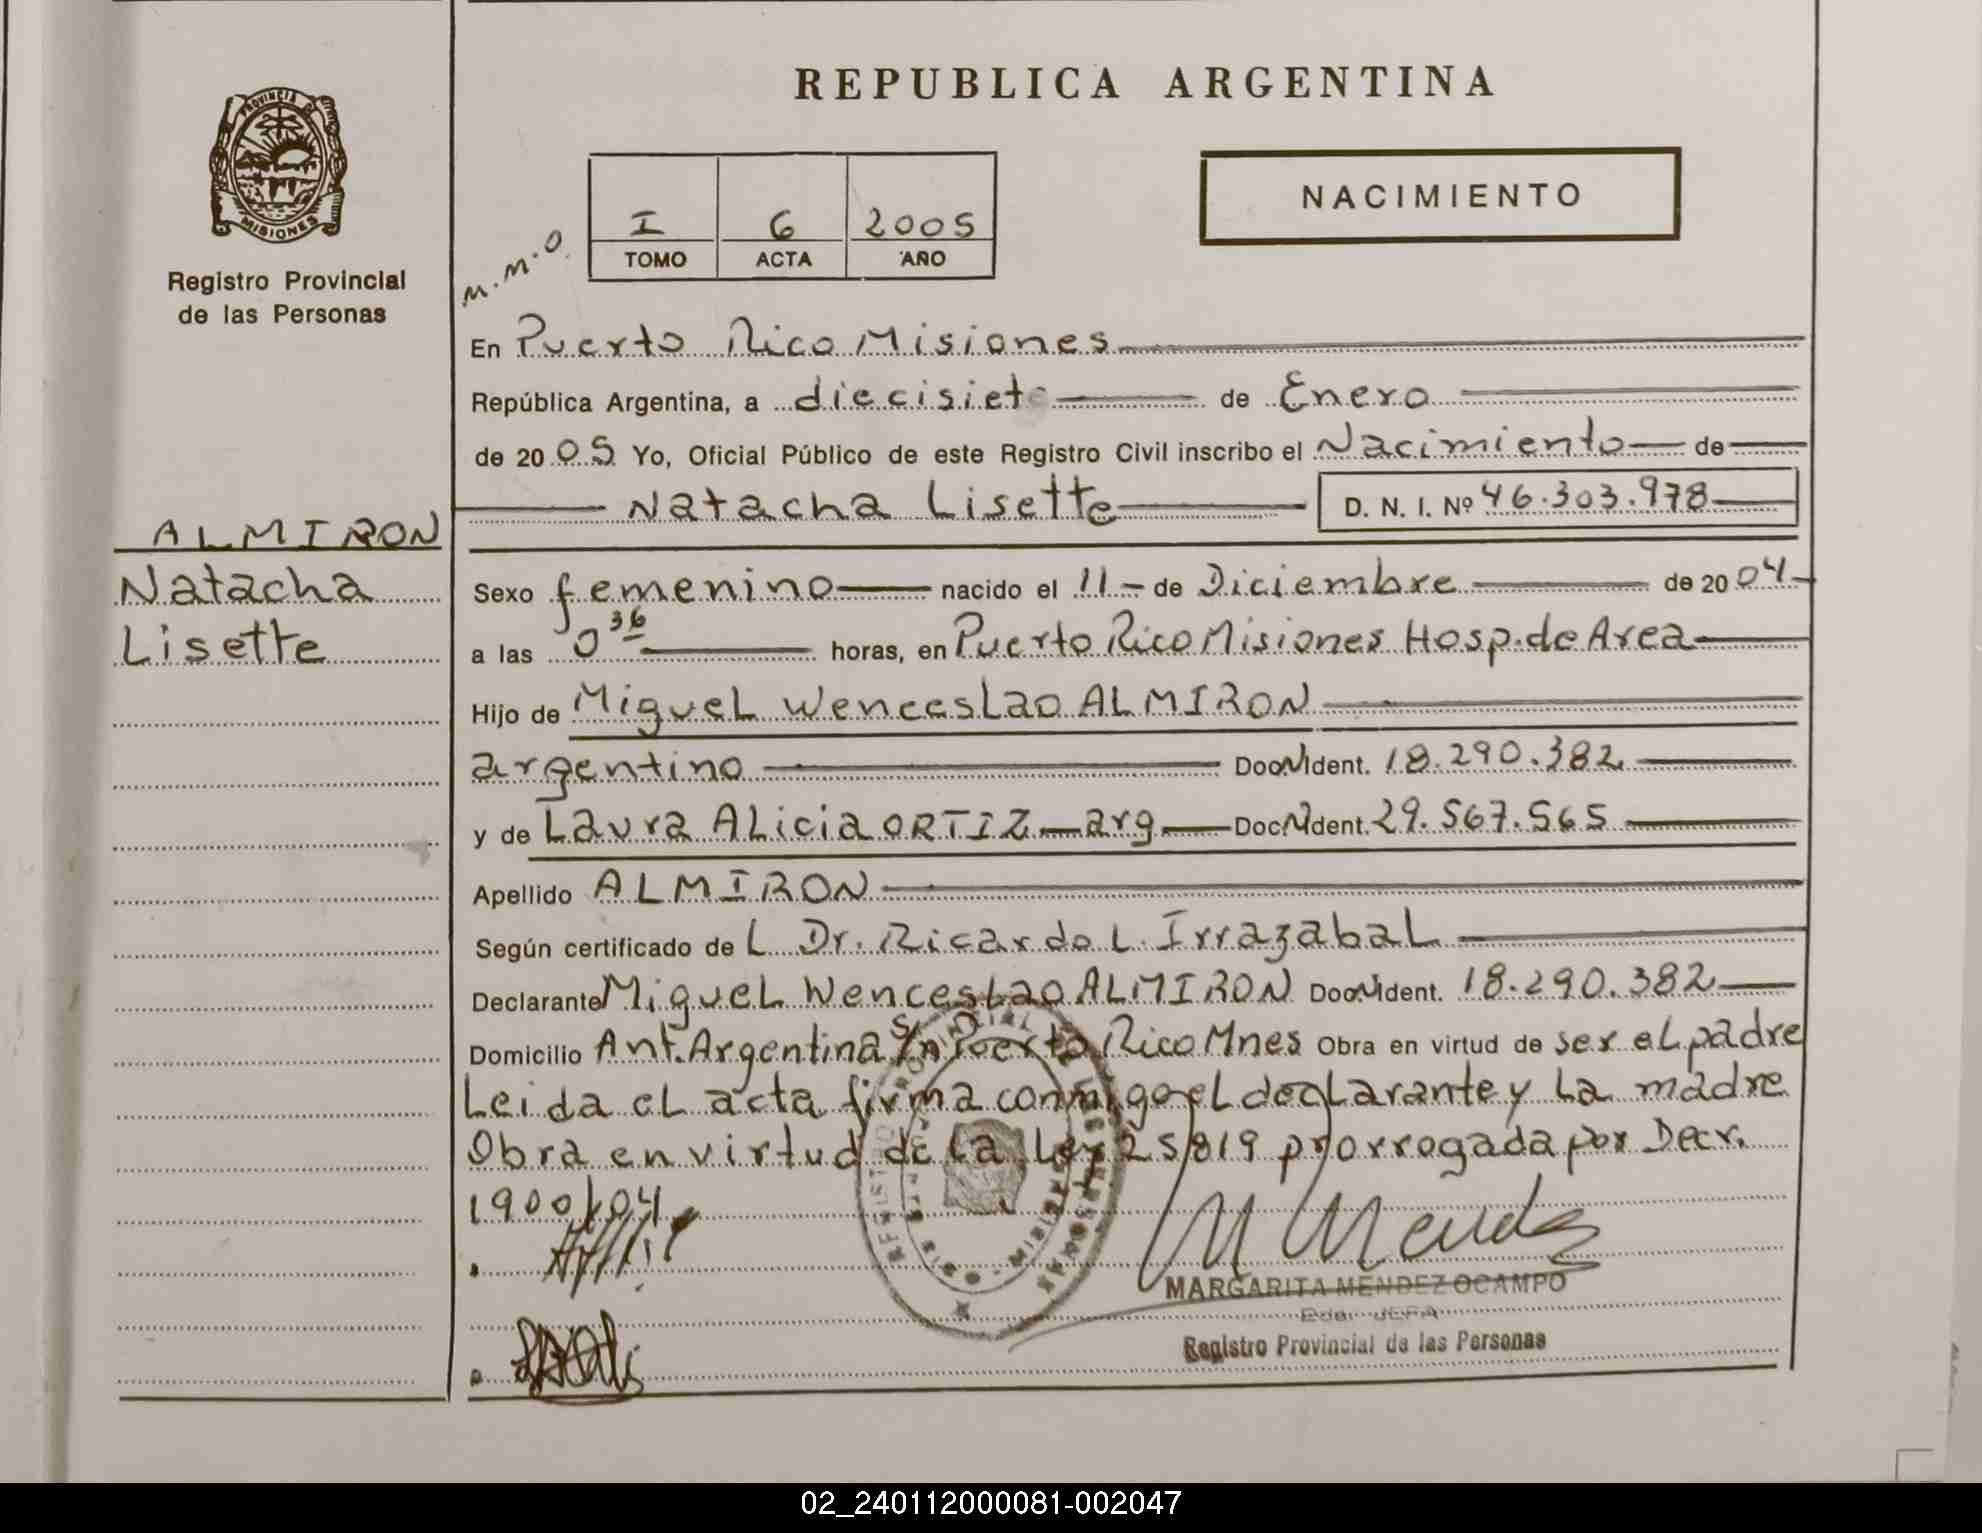 REPUBLICA ARGENTINA
PROVINCIA DE
MISIONES
Registro Provincial
de las Personas
NACIMIENTO
I 6 2005
TOMO ACTA AÑO
M.M.O.
En Puerto Rico Misiones
República Argentina, a diecisiete de Enero
de 2005 Yo, Oficial Público de este Registro Civil inscribo el Nacimiento de
Natacha Lisette D. N. I. Nº 46.303.978
ALMIRON
Natacha
Lisette
Sexo femenino nacido el 11 - de Diciembre de 2004
a las 0 36 horas, en Puerto Rico Misiones Hosp. de Area
Hijo de Miguel Wenceslao ALMIRON
argentino Doc N Ident. 18.290.382
y de Laura Alicia ORTIZ arg Doc N Ident. 29.567.565
Apellido ALMIRON
Según certificado de L Dr. Ricardo L. Irrazabal
Declarante Miguel Wenceslao ALMIRON Doc N Ident. 18.290.382
Domicilio Ant. Argentina S/n Puerto Rico Mnes Obra en virtud de ser el padre
Leida el acta firma conmigo el declarante y la madre
Obra en virtud de la Ley 25819 prorrogada por Decr.
1900/04
MARGARITA MENDEZ OCAMPO
JEFA
Registro Provincial de las Personas
02_240112000081-002047